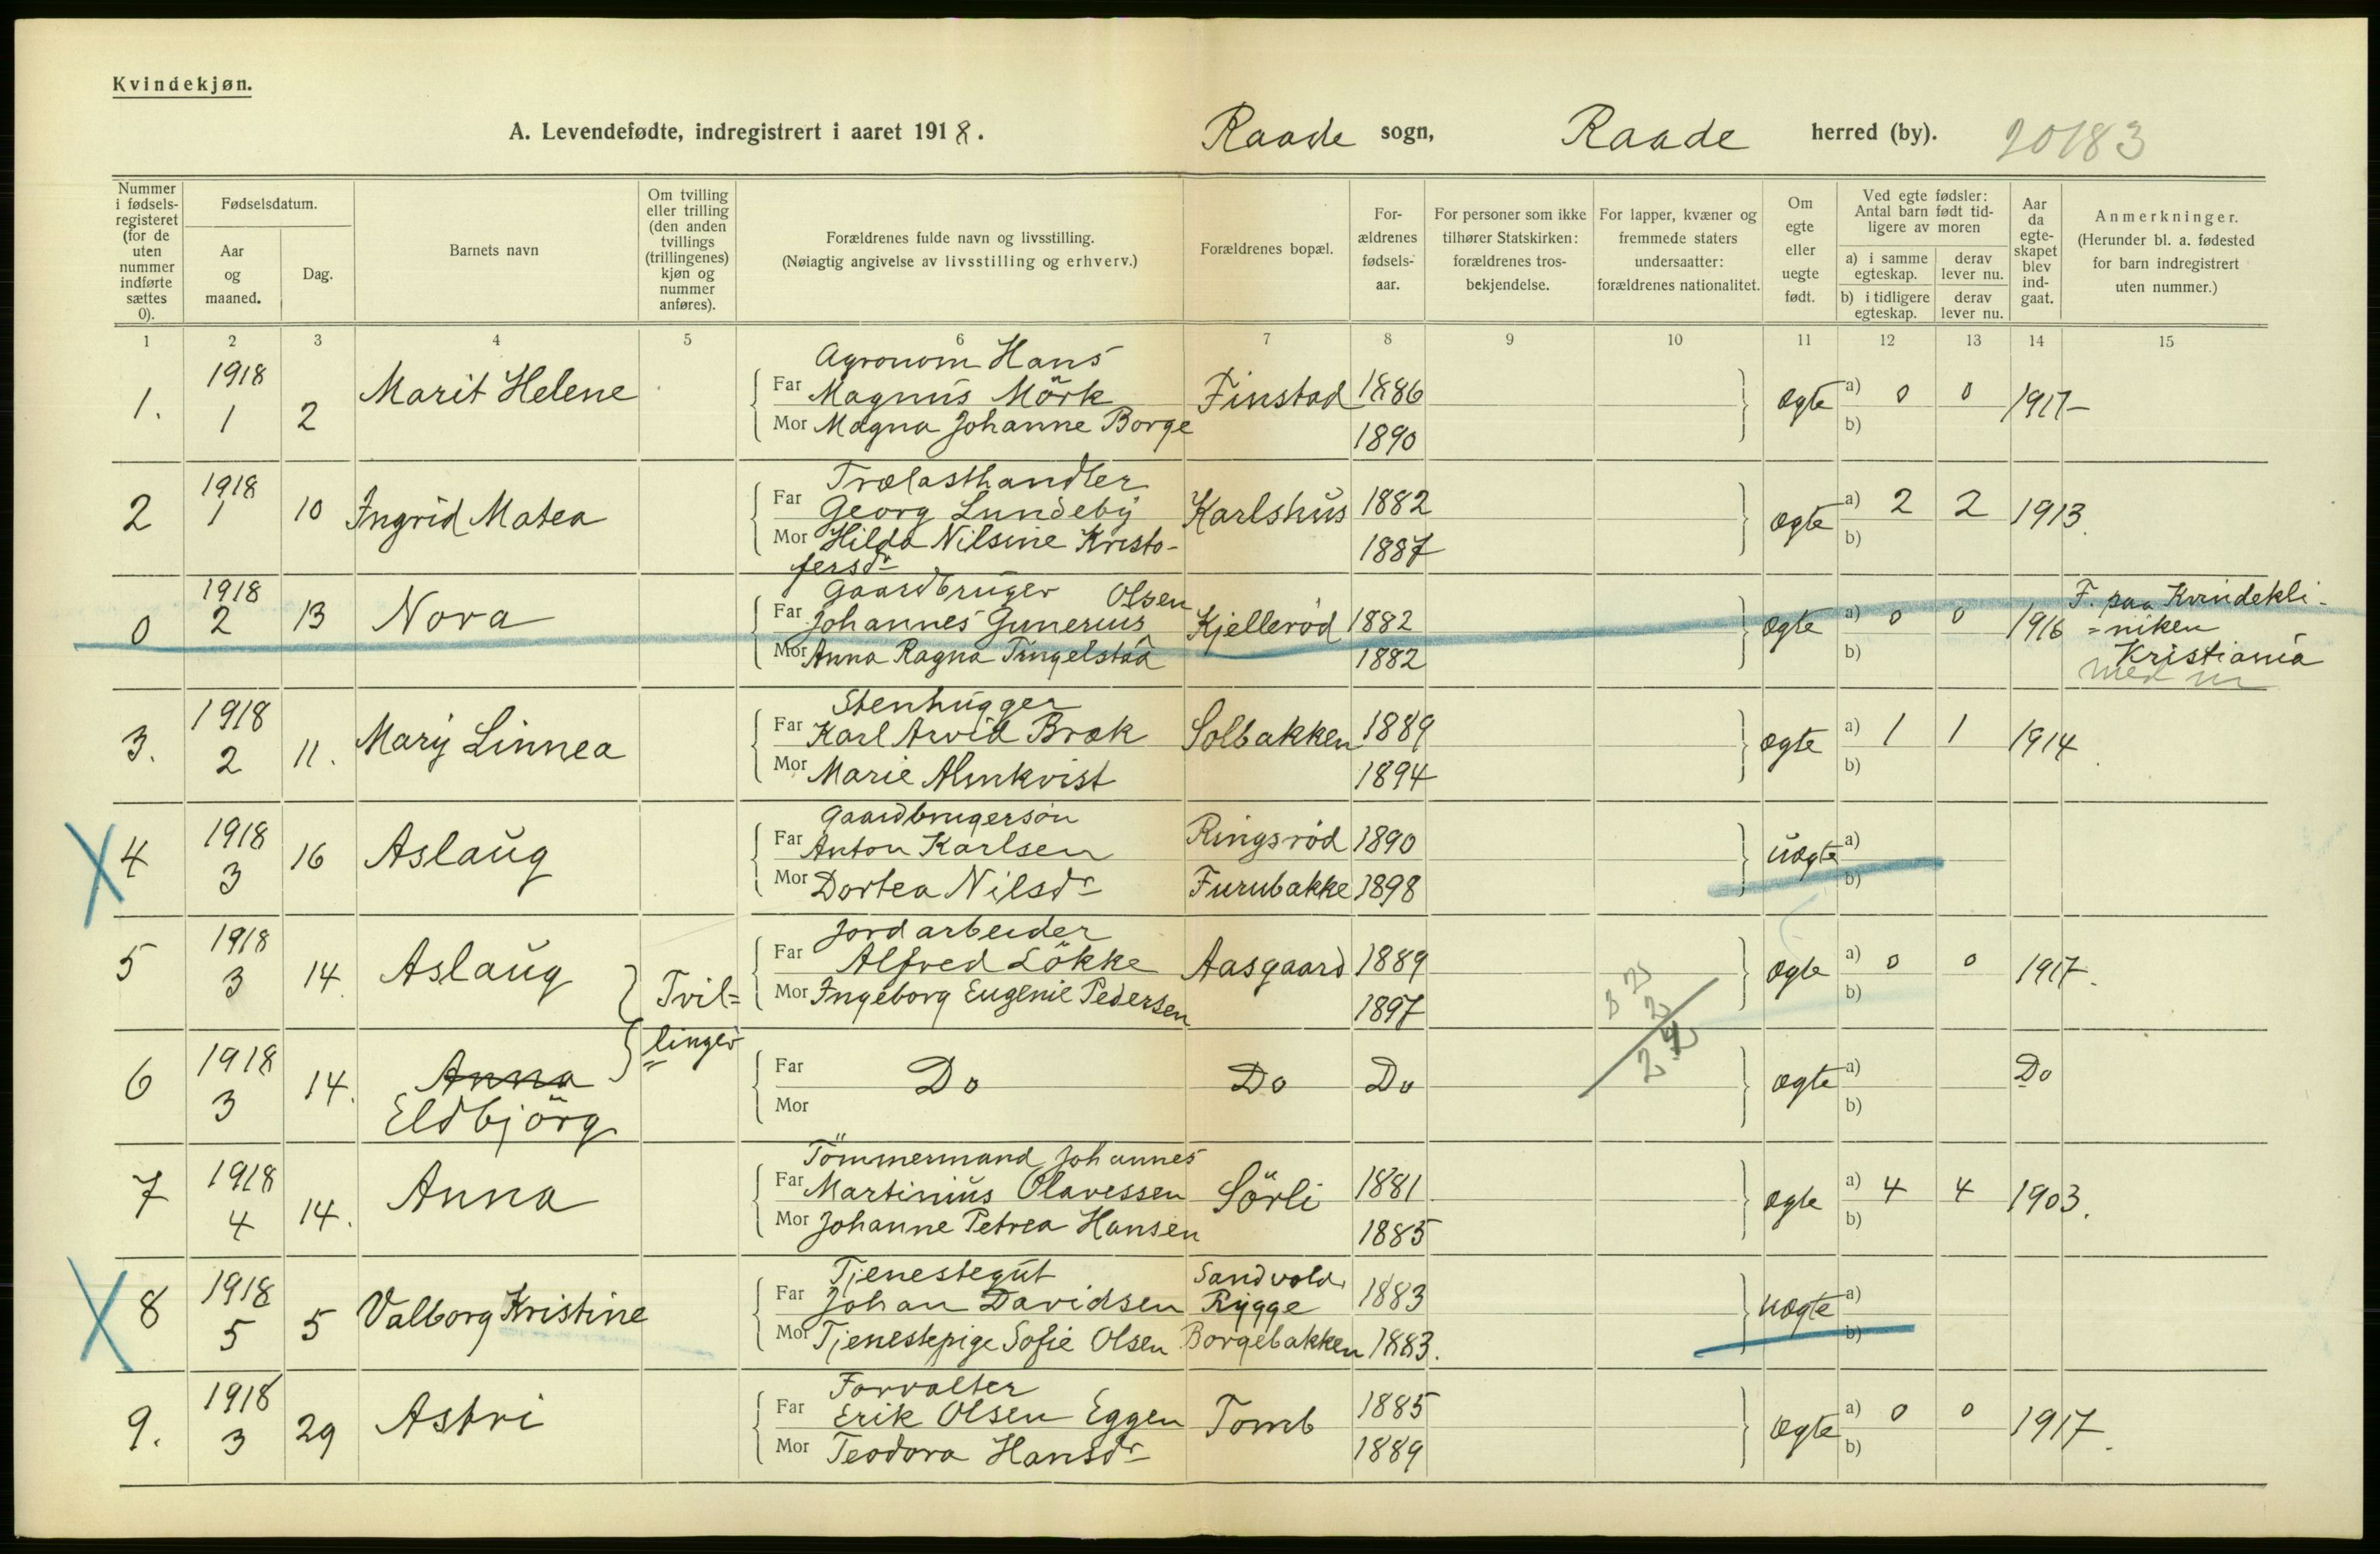 Kvindekjøn.
A. Levendefødte, indregistrert i aaret 1918. Raade sogn, Raade herred (by). 20183
Nummer i fødselsregisteret (for de uten nummer indførte sættes 0).
Fødselsdatum.
Aar og maaned.
Dag.
Barnets navn
Om tvilling eller trilling (den anden tvillings (trillingenes) kjøn og nummer anføres).
Forældrenes fulde navn og livsstilling.
(Nøiagtig angivelse av livsstilling og erhverv.)
Forældrenes bopæl.
Forældrenes fødselsaar.
For personer som ikke tilhører Statskirken: forældrenes trosbekjendelse.
For lapper, kvæner og fremmede staters undersaatter: forældrenes nationalitet.
Om egte eller uegte født.
Ved egte fødsler: Antal barn født tidligere av moren
a) i samme egteskap. derav lever nu.
b) i tidligere egteskap. derav lever nu.
Aar da egteskapet blev indgaat.
Anmerkninger.
(Herunder bl. a. fødested for barn indregistrert uten nummer.)
1 2 3 4 5 6 7 8 9 10 11 12 13 14 15
1. 1918 1 2 Marit Helene
Agronom Hans
Far Magnus Mörk Finstad 1886 ægte a) 0 0 1917
Mor Magna Johanne Borge 1890 b)
2 1918 1 10 Ingrid Matea
Trælasthandler
Far Georg Lundeby Karlshus 1882 ægte a) 2 2 1913
Mor Hilda Nilsine Kristo-
fersdr 1887 b)
0 1918 2 13 Nora
Gaardbruger Olsen
Far Johannes Gunerius Kjellerød 1882 ægte a) 0 0 1916 F. paa Kvindekli-
=niken
Mor Anna Ragna Tingelstad 1882 b) Kristiania
med
3. 1918 2 11. Mary Linnea
Stenhugger
Far Karl Arvid Bræk Solbakken 1889 ægte a) 1 1 1914
Mor Marie Almkvist 1894 b)
4 1918 3 16 Aslaug
Gaardbrugersøn
Far Anton Karlsen Ringsrød 1890 uægte a)
Mor Dortea Nilsdr Furubakke 1898 b)
5 1918 3 14. Aslaug Tvil=
Jordarbeider
Far Alfred Lökke Aasgaard 1889 ægte a) 0 0 1917.
Mor Ingeborg Eugenie Pedersen 1897 b)
6 1918 3 14. Anna linger
Eldbjörg
Far Do Do Do ægte a) Do
Mor b)
7 1918 4 14. Anna
Tömmermand Johannes
Far Martinius Olavessen Sörli 1881 ægte a) 4 4 1903.
Mor Johanne Petrea Hansen 1885 b)
8 1918 5 5 Valborg Kristine
Tjenestegut Sandvold
Far Johan Davidsen Rygge 1883 uægte a)
Mor Tjenestepige Sofie Olsen Borgebakken 1883. b)
9. 1918 3 29 Astri
Forvalter
Far Erik Olsen Eggen Tomb 1885 ægte a) 0 0 1917.
Mor Teodora Hansdr 1889 b)